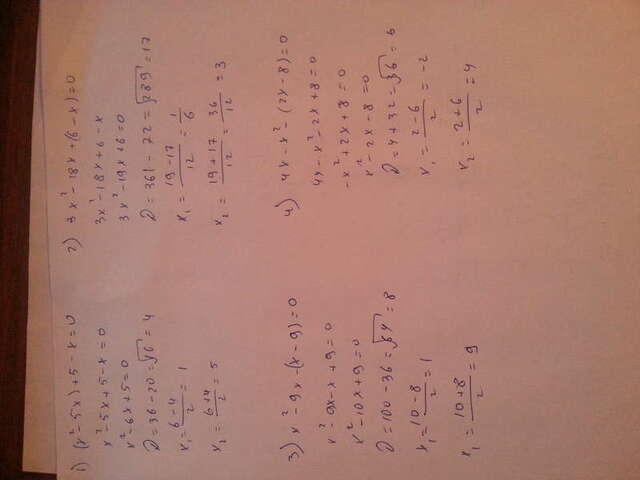 1) (x²-5x)+5-x=0
x²-5x+5-x=0
x²-6x+5=0
D=36-20=√16=4
x₁=6-4/2=1
x₂=6+4/2=5
2) 3x²-18x+(6-x)=0
3x²-18x+6-x
3x²-19x+6=0
D=361-72=√289=17
x₁=19-17/12=1/6
x₂=19+17/12=36/12=3
3) x²-9x-(x-9)=0
x²-9x-x+9=0
x²-10x+9=0
D=100-36=√64=8
x₁=10-8/2=1
x₁=10+8/2=9
4) 4x-x²-(2x-8)=0
4x-x²-2x+8=0
-x²+2x+8=0
x²-2x-8=0
D=4+32=√36=6
x₁=2-6/2=-2
x₂=2+6/2=4